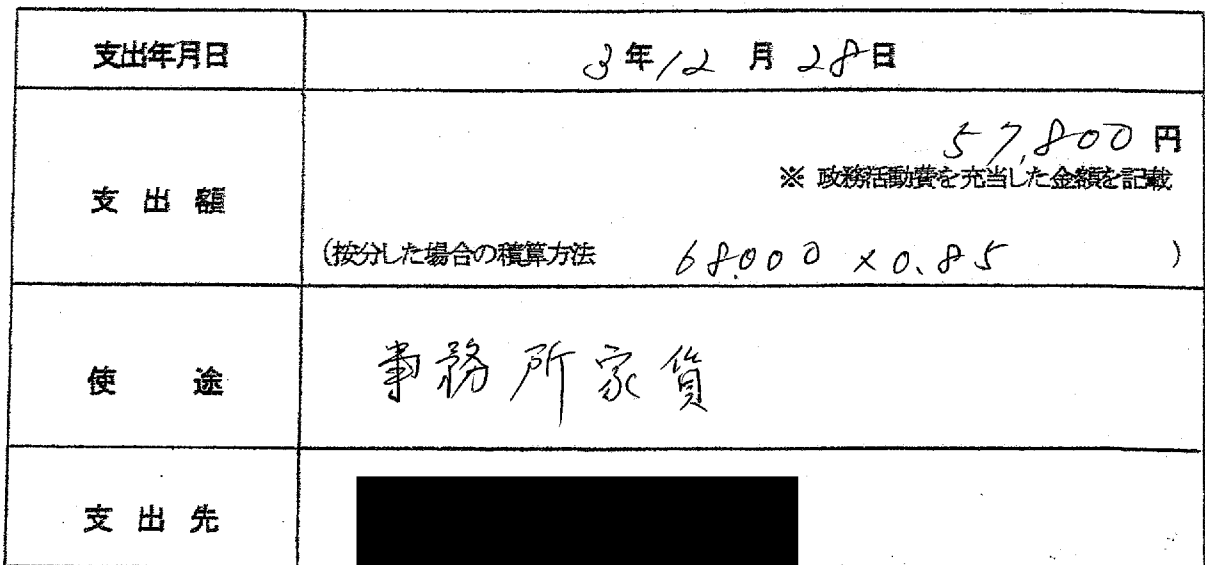 支出年月日 3年12月28日
57,800円
※ 政務活動費を充当した金額を記載
支出額
(按分した場合の積算方法 68,000×0.85)
使途 事務所家賃
支出先